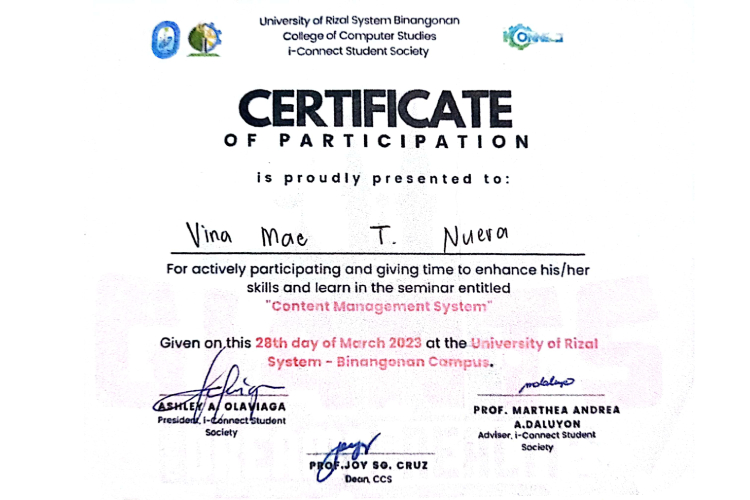 University of Rizal System Binangonan
College of Computer Studies
i-Connect Student Society
CONNECT
CERTIFICATE
OF PARTICIPATION
is proudly presented to:
Vina Mae T. Nuera
For actively participating and giving time to enhance his/her
skills and learn in the seminar entitled
"Content Management System"
Given on this 28th day of March 2023 at the University of Rizal
System - Binangonan Campus.
ASHLEY A. OLAVIAGA
President, i-Connect Student
Society
PROF. MARTHEA ANDREA
A.DALUYON
Adviser, i-Connect Student
Society
PROF.JOY SG. CRUZ
Dean, CCS